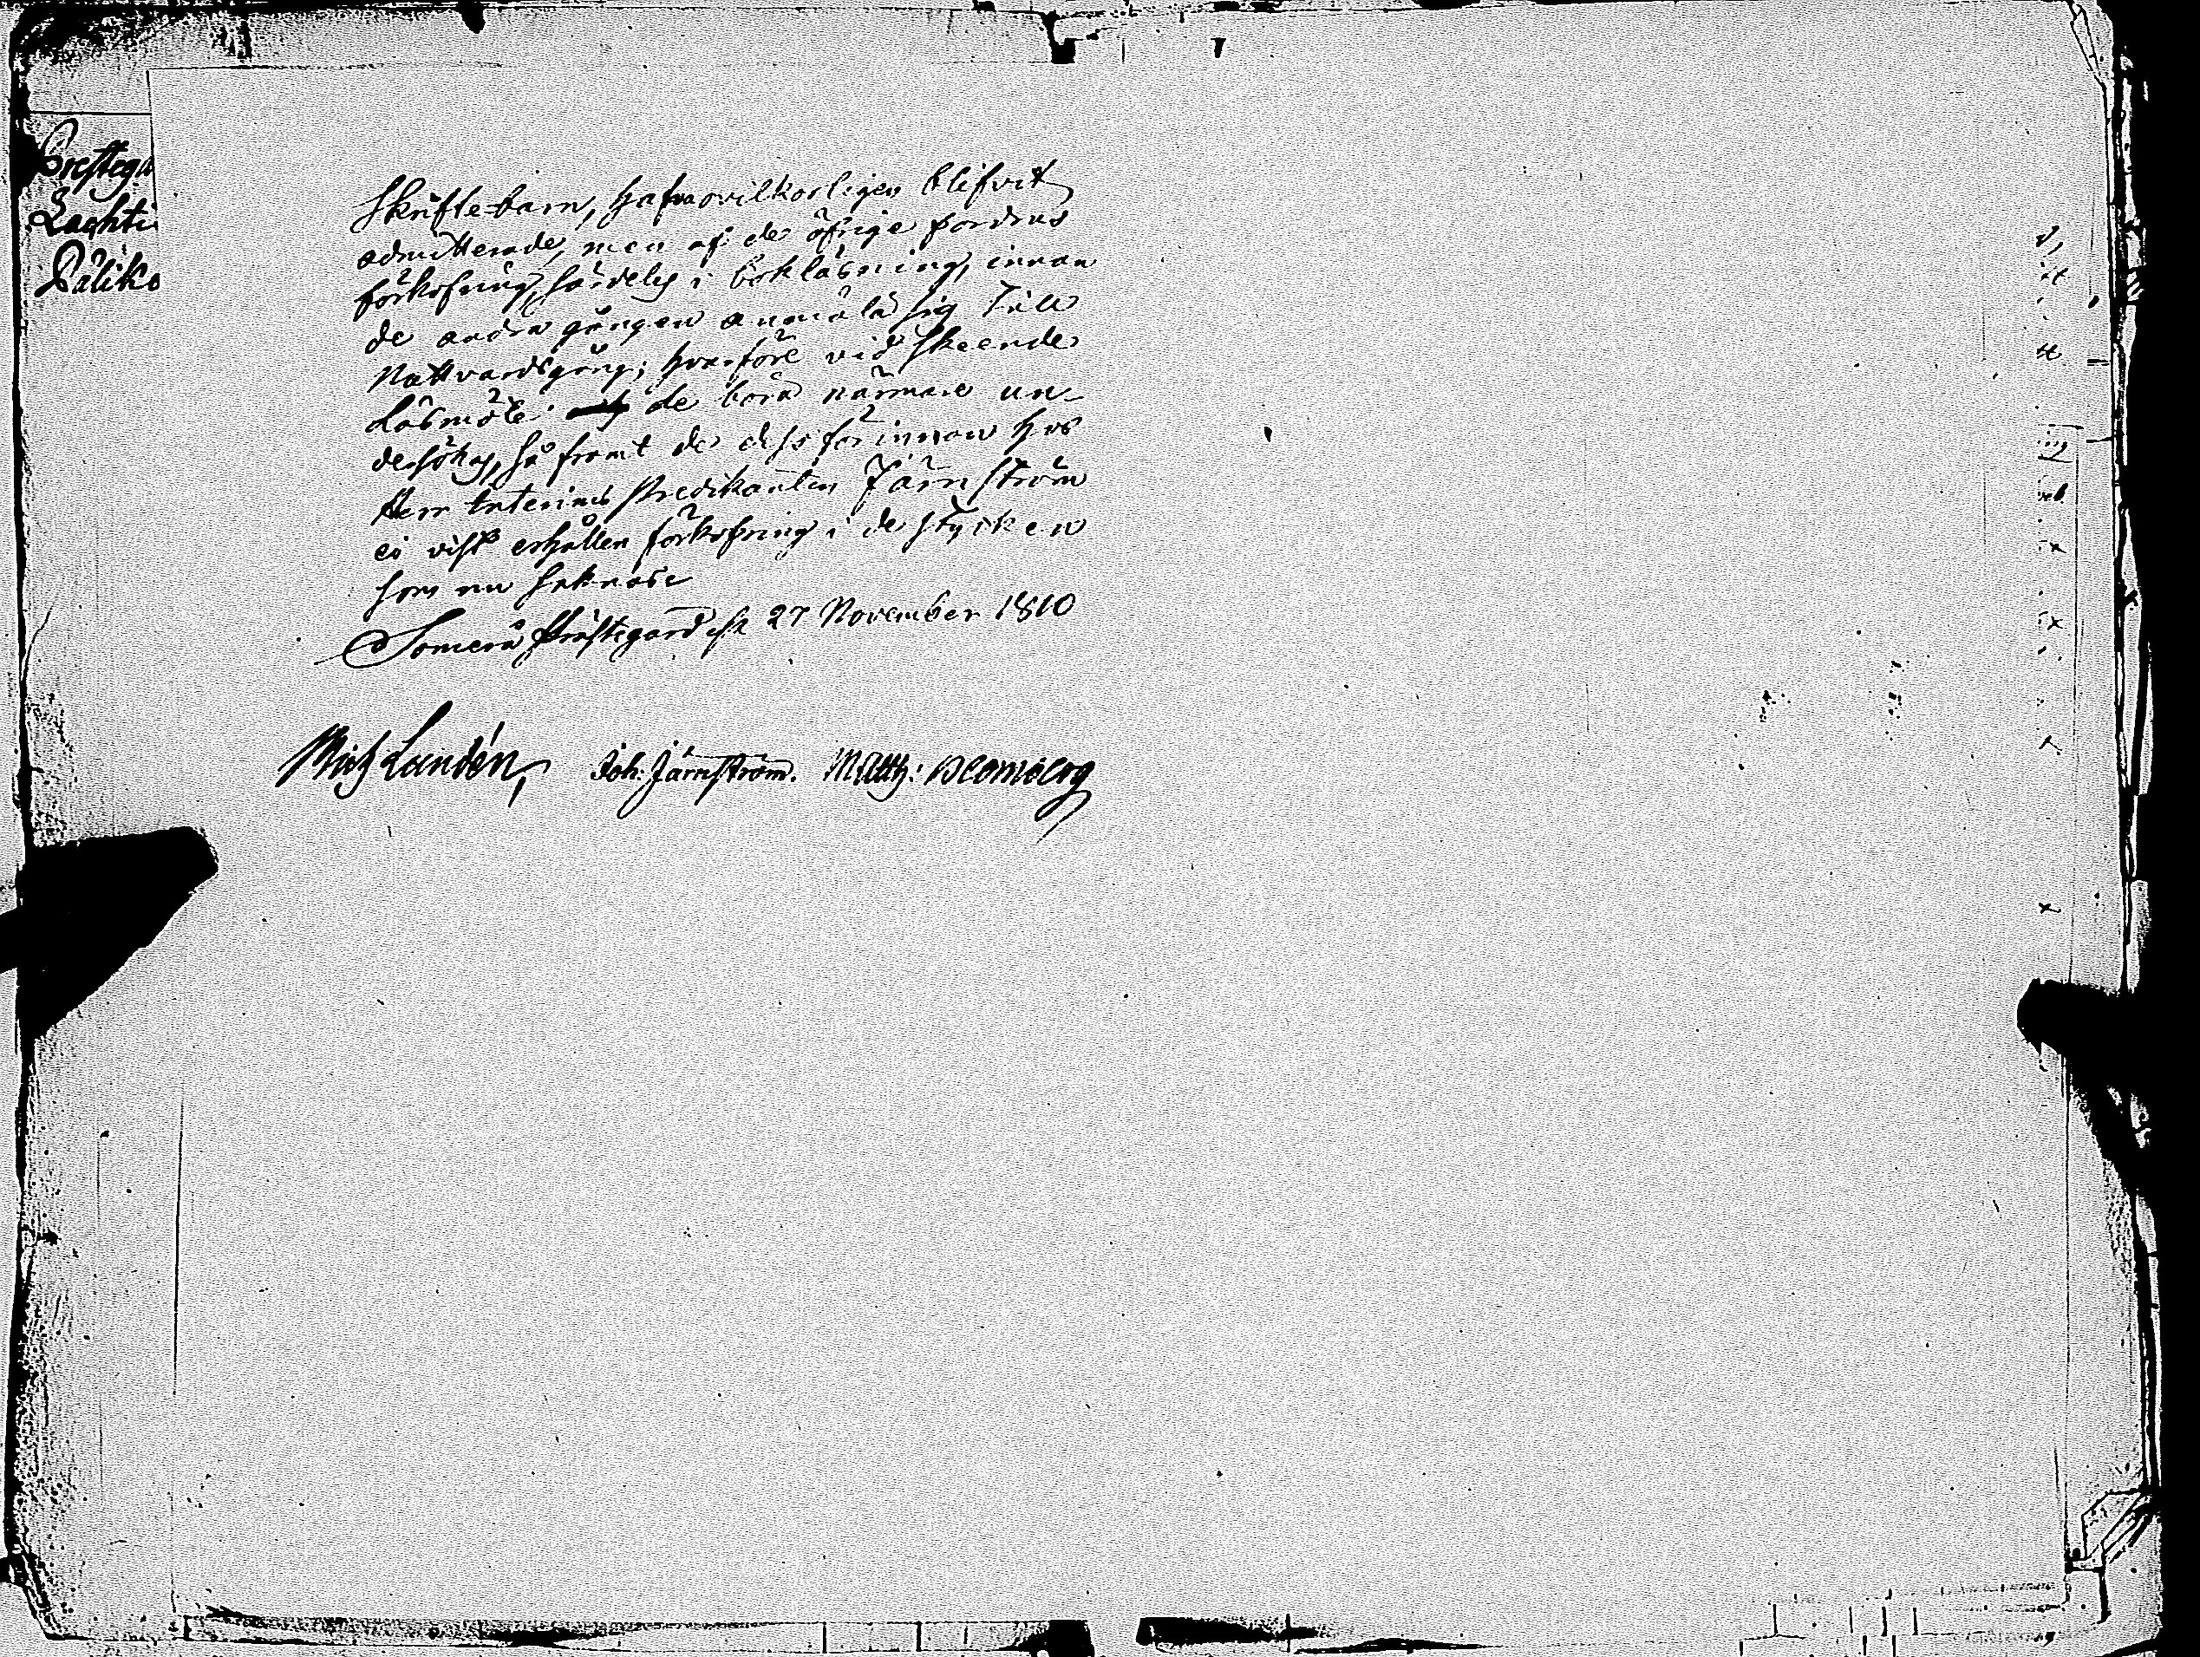 Prestegå
Lachti
Påliko
Skriftebarn, hafva ovilkorligen blifvit
admitterade, men af de öfrige fordras
förkofring, särdeles i bokläsning, innan
de andra gången anmäla sig till
Nattvardsgång; hvarföre vid skeende
Läsmöte de böra närmare un-
dersökas, så framt de dess förinnan hos
Herr Interims Predikanten Järnström
ei visst erhållen förkofring i de stycken
som nu saknats
Somero Prästegård d. 27 November 1810
Mich Lundén, Joh: Järnström. Matth: Blomberg